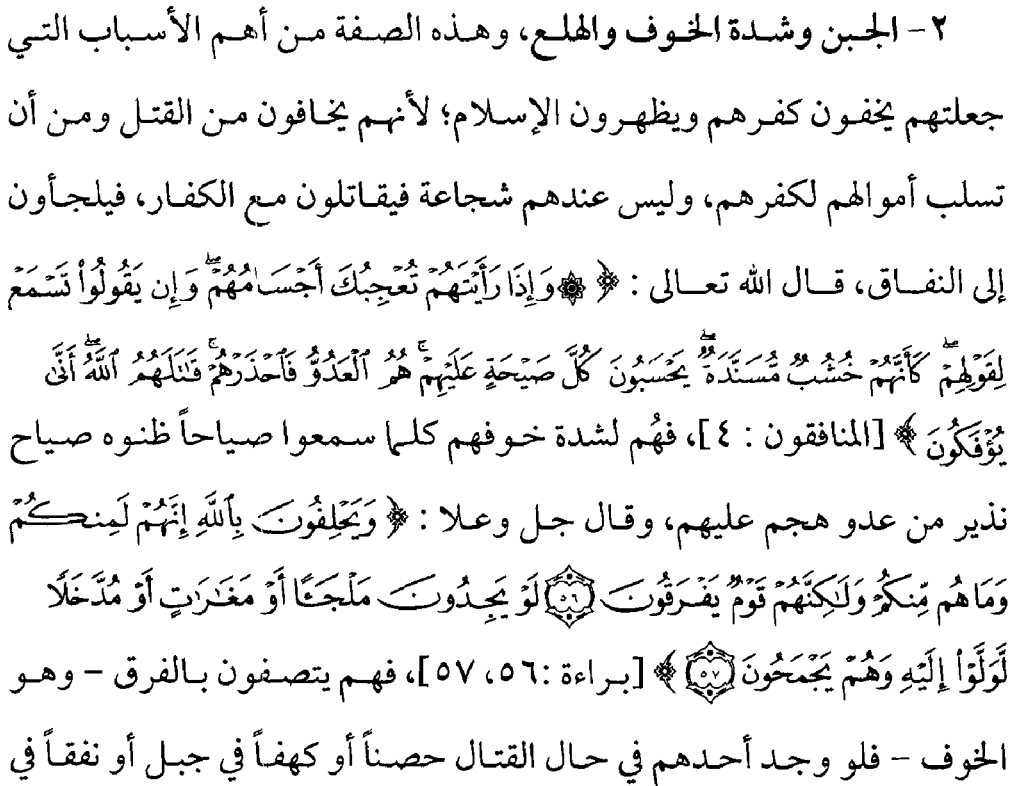 ٢ - الجبن وشدة الخوف والهلع، وهذه الصفة من أهم الأسباب التي
جعلتهم يخفون كفرهم ويظهرون الإسلام؛ لأنهم يخافون من القتل ومن أن
تسلب أموالهم لكفرهم، وليس عندهم شجاعة فيقاتلون مع الكفار، فيلجأون
إلى النفاق، قال الله تعالى : ﴿ ۞ وَإِذَا رَأَيْتَهُمْ تُعْجِبُكَ أَجْسَامُهُمْ ۖ وَإِن يَقُولُوا۟ تَسْمَعْ
لِقَوْلِهِمْ ۖ كَأَنَّهُمْ خُشُبٌ مُّسَنَّدَةٌ ۖ يَحْسَبُونَ كُلَّ صَيْحَةٍ عَلَيْهِمْ ۚ هُمُ ٱلْعَدُوُّ فَٱحْذَرْهُمْ ۚ قَـٰتَلَهُمُ ٱللَّهُ ۖ أَنَّىٰ
يُؤْفَكُونَ ﴾ [المنافقون : ٤]، فهُم لشدة خوفهم كلما سمعوا صياحاً ظنوه صياح
نذير من عدو هجم عليهم، وقال جل وعلا : ﴿ وَيَحْلِفُونَ بِٱللَّهِ إِنَّهُمْ لَمِنكُمْ
وَمَا هُم مِّنكُمْ وَلَـٰكِنَّهُمْ قَوْمٌ يَفْرَقُونَ ۝٥٦ لَوْ يَجِدُونَ مَلْجَـًٔا أَوْ مَغَـٰرَٰتٍ أَوْ مُدَّخَلًا
لَّوَلَّوْا۟ إِلَيْهِ وَهُمْ يَجْمَحُونَ ۝٥٧ ﴾ [براءة :٥٦، ٥٧]، فهم يتصفون بالفرق – وهو
الخوف – فلو وجد أحدهم في حال القتال حصناً أو كهفاً في جبل أو نفقاً في